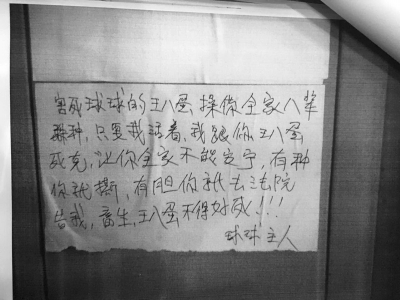 害死球球的王八蛋,操你全家八辈
杂种,只要我活着,我跟你王八蛋
死克,让你全家不能安宁,有种
你就撕,有胆你就去法院
告我,畜生,王八蛋不得好死!!!
球球主人